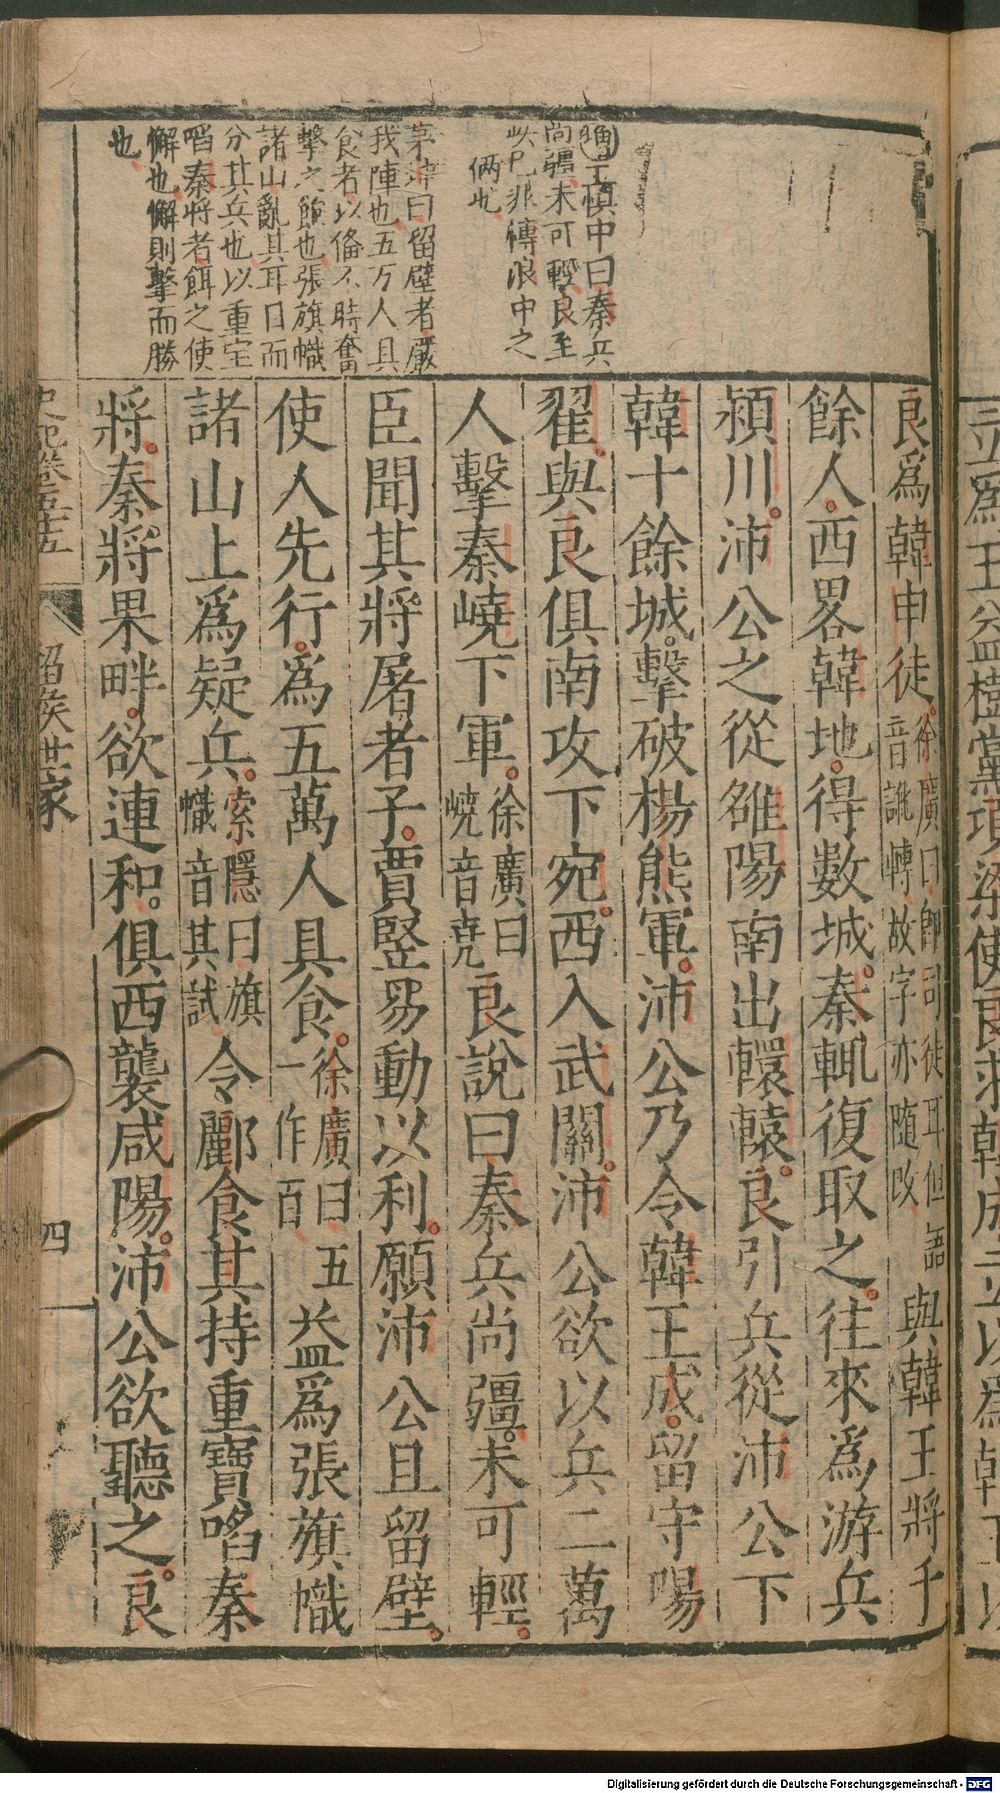 王慎中曰秦兵
尚疆未可輕良至
此已非慱浪中之
俩也
茅坤曰留壁者嚴
我陣也五万人具
食者以俻不時奮
擊之餉也張旗幟
諸山亂其耳目而
分其兵也以重宝
啗秦将者餌之使
懈也懈則擊而勝
也
良爲韓申徒徐廣曰即司徒耳但語音訛轉故字亦随改與韓王將千
餘人西畧韓地得數城秦輒復取之往來爲游兵
潁川沛公之從雒陽南出轘轅良引兵從沛公下
韓十餘城擊破楊熊軍沛公乃令韓王成留守陽
翟與良俱南攻下宛西入武關沛公欲以兵二萬
人擊秦嶢下軍徐廣曰嶢音堯良說曰秦兵尚疆未可輕
臣聞其將屠者子賈竪易動以利願沛公且留壁
使人先行爲五萬人具食徐廣曰五一作百益爲張旗幟
諸山上爲疑兵索隱曰旗幟音其試令酈食其持重寶啗秦
將秦將果畔欲連和俱西襲咸陽沛公欲聽之良
史記卷五十五
留侯世家
四
立爲王益樹黨項梁使良求韓成立以爲韓王以
Digitalisierung gefördert durch die Deutsche Forschungsgemeinschaft - DFG